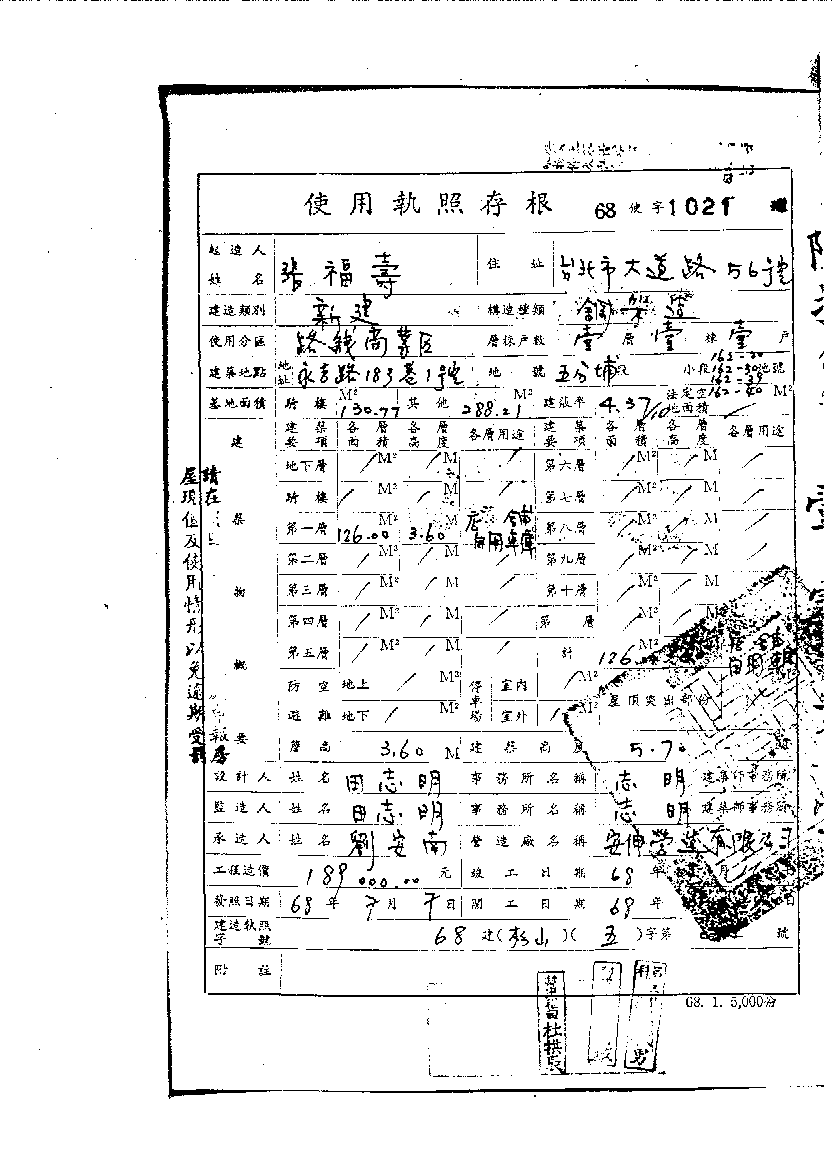 使用執照存根 68 使字 1021 號
起造人姓名 張福壽 住址 台北市大道路56號
建造類別 新建 構造種類
使用分區 路線商業區 層棟戶數 壹層 壹棟 壹戶
建築地點 地址 永吉路183巷1號 地號 五分埔 段 小段 162-30 地號
162-39
162-40
基地面積 騎樓 M² 其他 288.21 M² 建蔽率 4.37/10 法定空地面積 / M²
建築物概要
建築要項 各層面積 各層高度 各層用途 建築要項 各層面積 各層高度 各層用途
地下層 / M² / M / 第六層 / M² / M /
騎樓 / M² / M / 第七層 / M² / M /
第一層 126.00 M² 3.60 M 店舖 自用車庫 第八層 / M² / M /
第二層 / M² / M / 第九層 / M² / M /
第三層 / M² / M / 第十層 / M² / M /
第四層 / M² / M / 第 層 / M² / M /
第五層 / M² / M / 計 126 M²
防空 地上 / M² 停車場 室內 / M² 屋頂突出部份
避難 地下 / M² 室外 / M²
簷高 3.60 M 建築高度 5.70
設計人 姓名 田志明 事務所名稱 志明 建築師事務所
監造人 姓名 田志明 事務所名稱 志明 建築師事務所
承造人 姓名 劉安南 營造廠名稱 安伸營造有限公司
工程造價 189000.00 元 竣工日期 68 年 月
發照日期 68 年 7 月 日 開工日期 68 年 日
建造執照字號 68 建(松山)(五)字第 號
附註
68. 1. 5,000份
請在
屋現值及使用情形以免逾期受罰